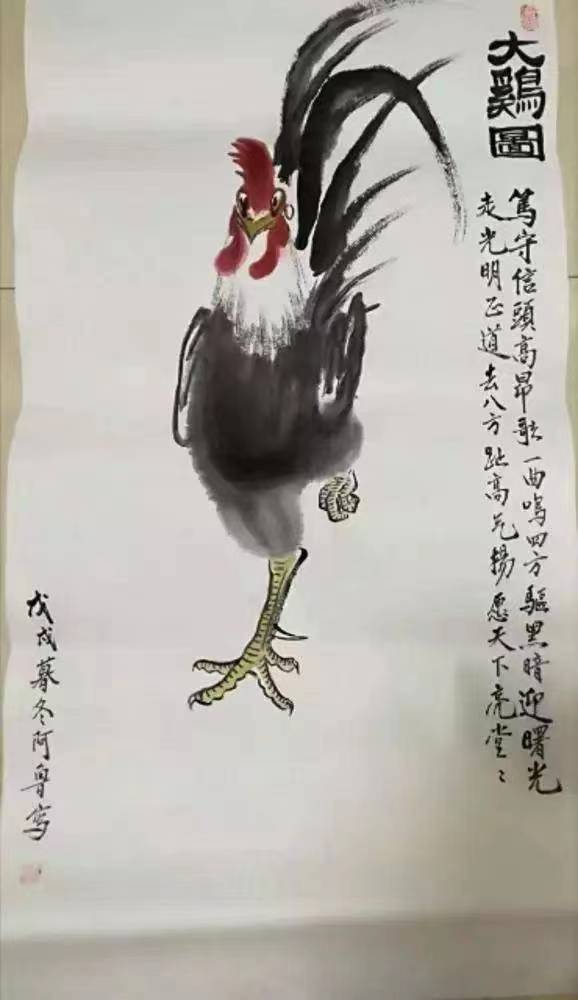 大鷄圖
篤守信頭高昂歌一曲鳴四方驅黑暗迎曙光
走光明正道去八方趾高气揚愿天下亮堂〻
戊戌暮冬阿鲁写